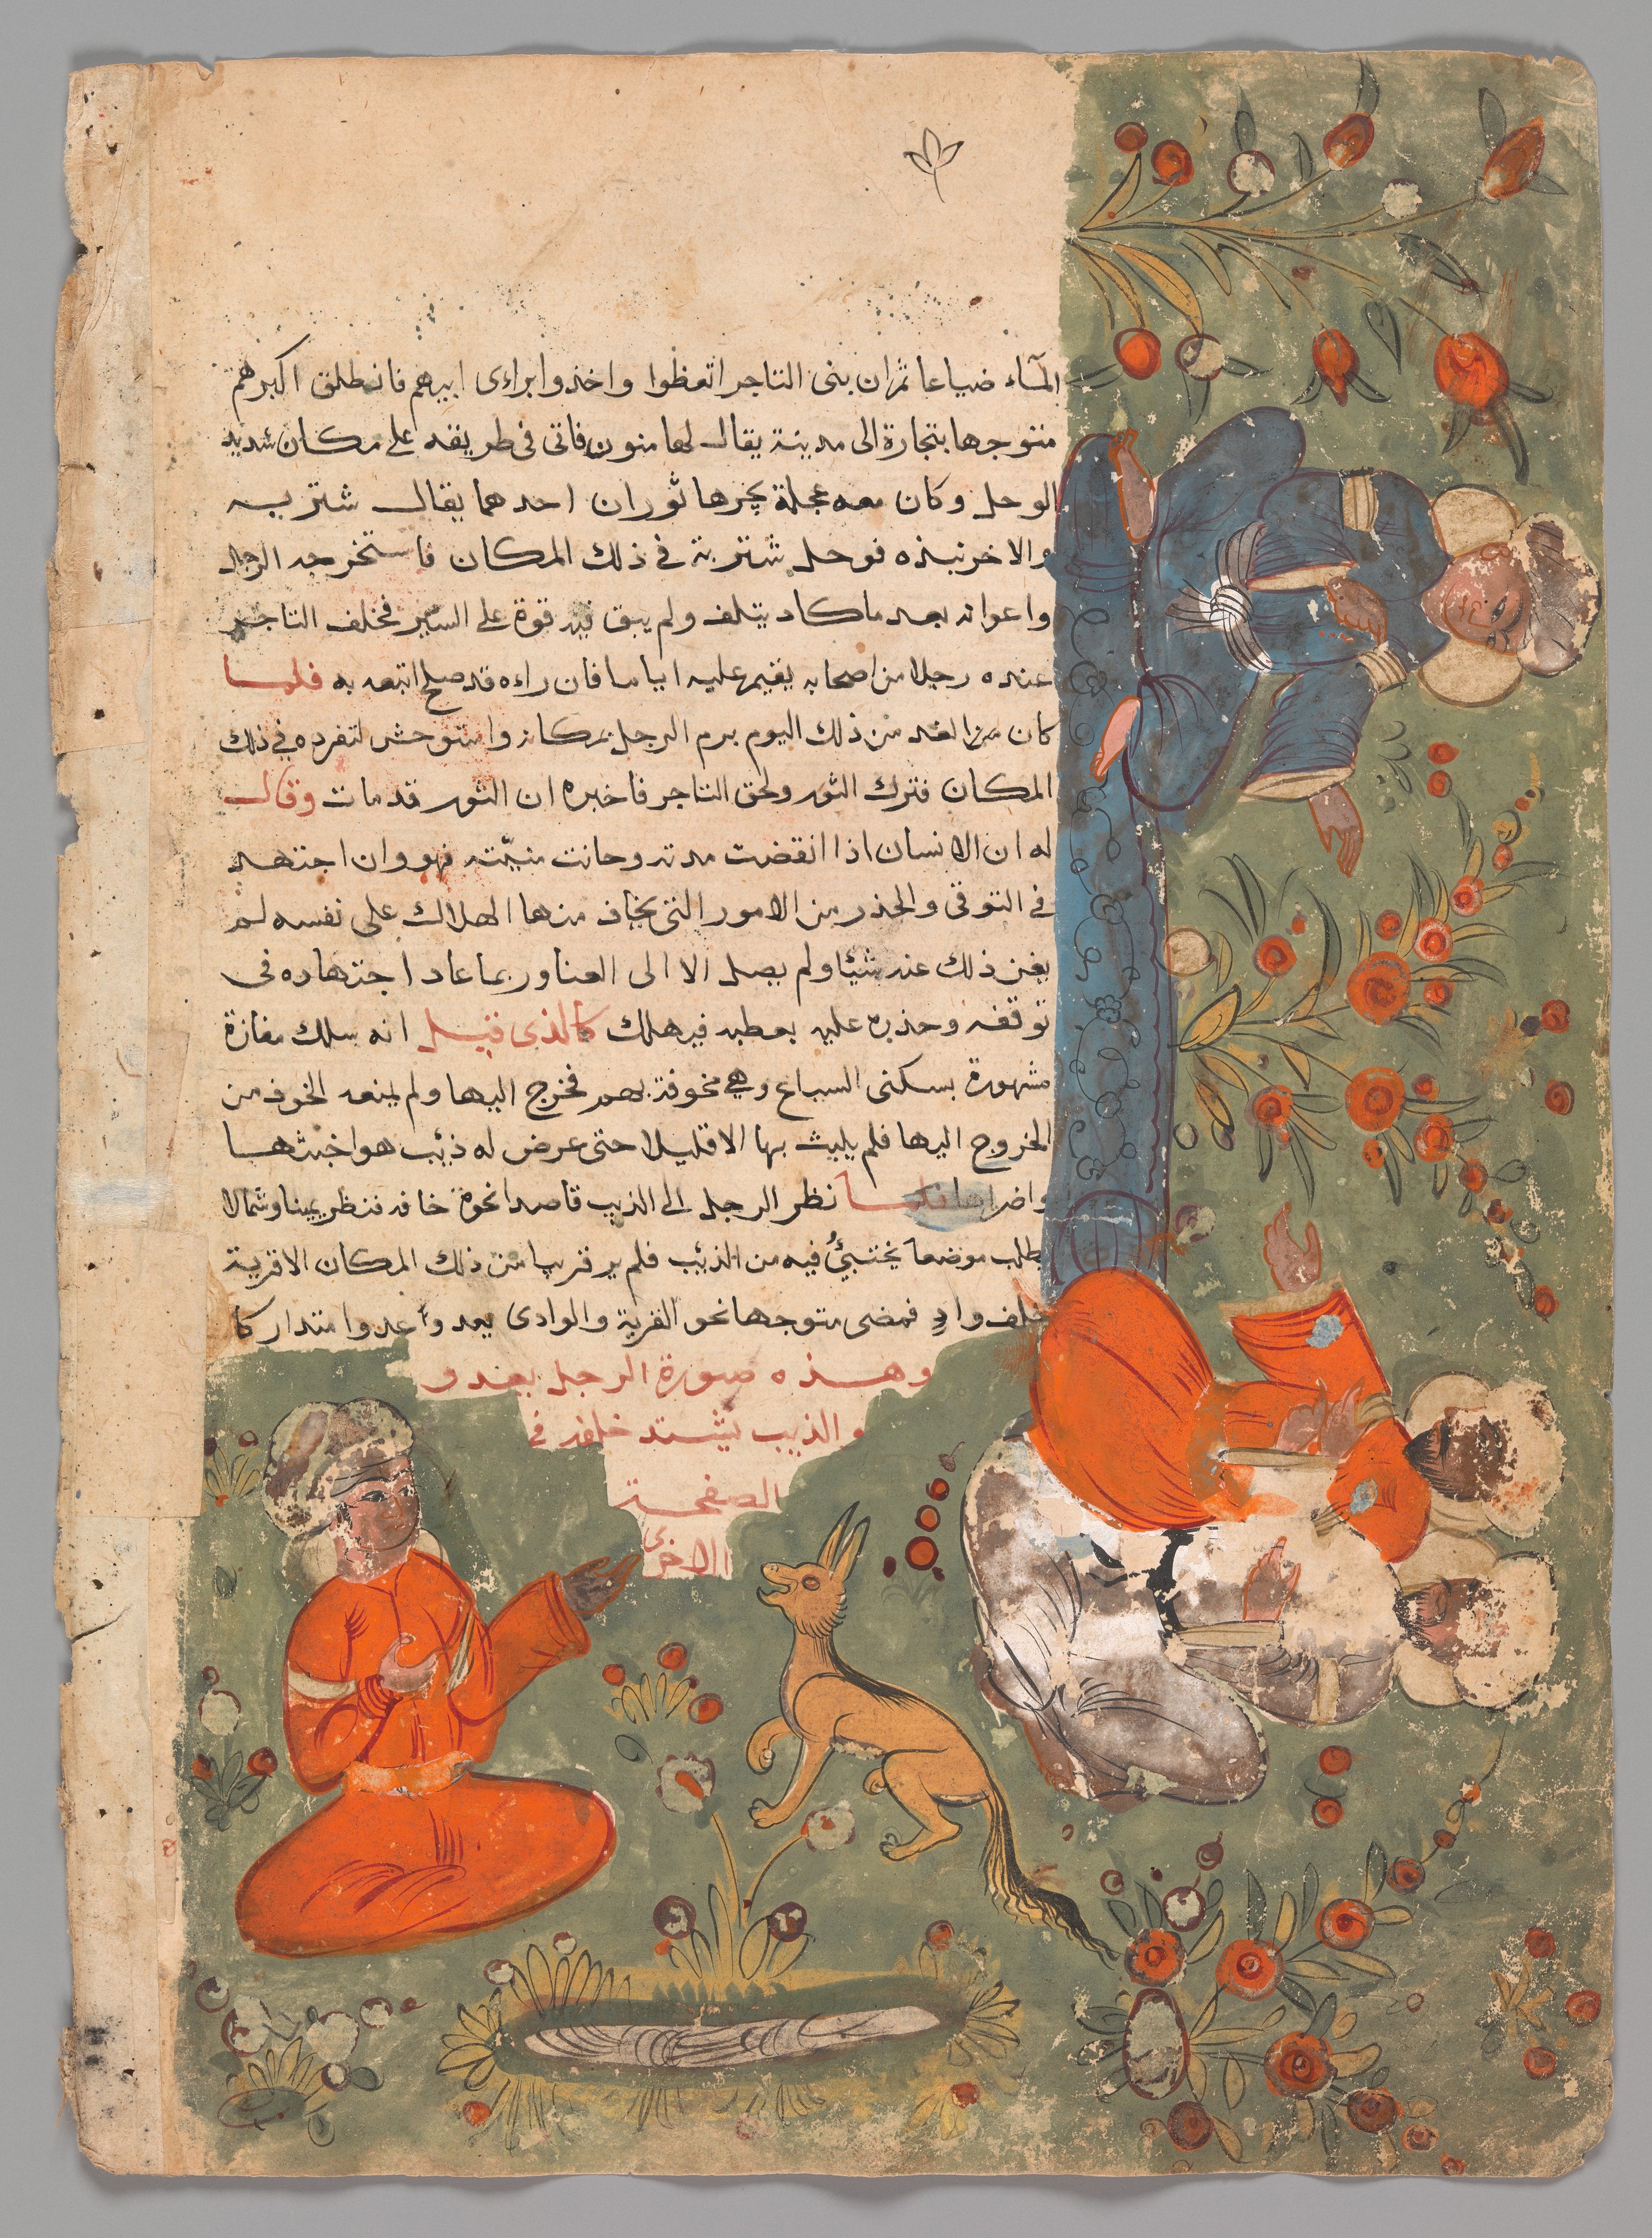 المآء ضياعا ثم ان بنى التاجر اتعظوا واخذوا براءى ابيهم فانطلق اكبرهم
متوجها بتجارة الى مدينة يقال لها منون فاتى فى طريقه على مكان شديد
الوحل وكان معه عجلة يجرها ثوران احدهما يقال شتربه
والاخر نبذه فوحل شتربة في ذلك المكان فاستخرجه الرجل
واعوانه بعد ما كاد يتلف ولم يبق فيه قوة على السير فخلف التاجر
عنده رجلا من اصحابه يقيم عليه اياما فان راءه قد صلح اتبعه به فلما
كان من الغد من ذلك اليوم برم الرجل بمكانه واستوحش لتفرده في ذلك
المكان فترك الثور ولحق التاجر فاخبره ان الثور قد مات وقال
له ان الانسان اذا انقضت مدته وحانت منيّته فهو وان اجتهد
في التوقى والحذر من الامور التي يخاف منها الهلاك على نفسه لم
يغن ذلك عنه شيئا ولم يصل الا الى العنا وربما عاد اجتهاده فى
توقفه وحذره عليه بعطبه فيهلك كالذى قيل انه سلك مفازة
مشهورة بسكنى السباع وهي مخوفة بهم فخرج اليها ولم يمنعه الخوف من
الخروج اليها فلم يلبث بها الا قليلا حتى عرض له ذئب هو اخبثها
واضراها فلما نظر الرجل الى الذيب قاصدا نحوه خافه فنظر يمينا وشمالا
يطلب موضعا يختبئُ فيه من الذئب فلم ير قريبا من ذلك المكان الا قرية
خلف وادٍ فمضى متوجها نحو القرية والوادى
وهذه صورة الرجل يعدو
والذيب يشتد خلفه في
الصفحة
الاخرى